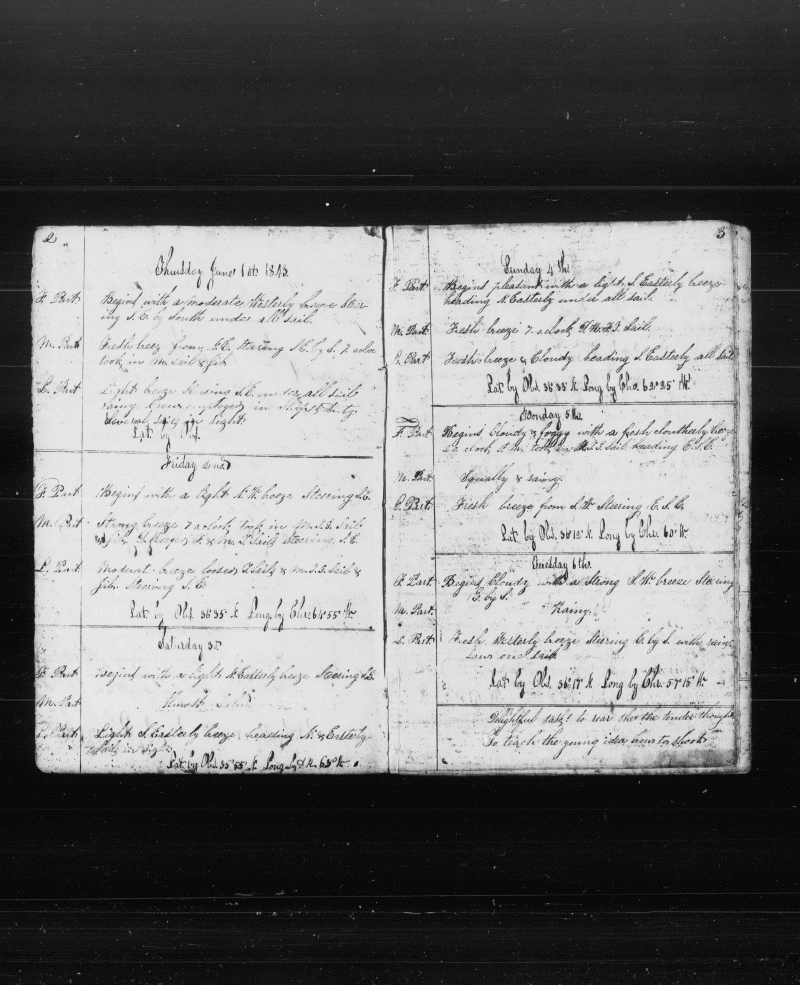 2
Thursday June 1st 1843.
F. Part Begins with a moderate Westerly breeze Steer-
ing S.E by South under all sail.
M. Part Fresh breez from steering S.E. by S. 7 oclock
took in M. Sail & Jib
L. Part Light breeze Steering S.E. under all sail
employed in Ships Duty
Several Sails in Sight
Lat by Obs.
Friday 2nd
F. Part Begins with a light N.W. breeze Steering S.E.
M. Part Strong breeze 7 oclock took in M.T.G. Sail
& jib F. & M. T. Sails Steering S.E.
L. Part Moderate breeze loosed T. Sails & M.T.G. Sail &
Jib. Steering S.E.
Lat by Obs. 36°35 N Long by Chr. 64°55 W.
Saturday 3d
F. Part Begins with a light N. Easterly breeze Steering S.E.
M. Part Almost Calm
L. Part Light S. Easterly breeze heading N. & Easterly
Sails in Sight
Lat by Obs 35°55 N Long by D R. 63° W.
3
Sunday 4th
F. Part Begins pleasant with a light S. Easterly breeze
heading N. Easterly under all sail.
M. Part Fresh breeze 7. oclock Sail.
L. Part Fresh breeze & Cloudy heading S. Easterly all sail
Lat by Obs. 36°35 N Long by Chro. 62°25 W.
Monday 5th
F. Part Begins Cloudy & foggy with a fresh Southerly breeze
oclock P.M. took in M.T.G. Sail heading E.S.E.
M. Part Squally & rainy.
L. Part Fresh breeze from S.W. Steering E.S.E.
Lat by Obs. 36°12 N Long by Chr. 60° W.
Tuesday 6th.
F. Part Begins Cloudy with a Strong S.W. breeze Steering
E. by S.
M. Part " " Rainy.
L. Part Fresh Westerly breeze Steering E. by S. with rain
saw one sail
Lat by Obs. 36°17 N Long by Chr. 57°15 W.
Delightful task! to rear the tender thought
To teach the young idea how to shoot